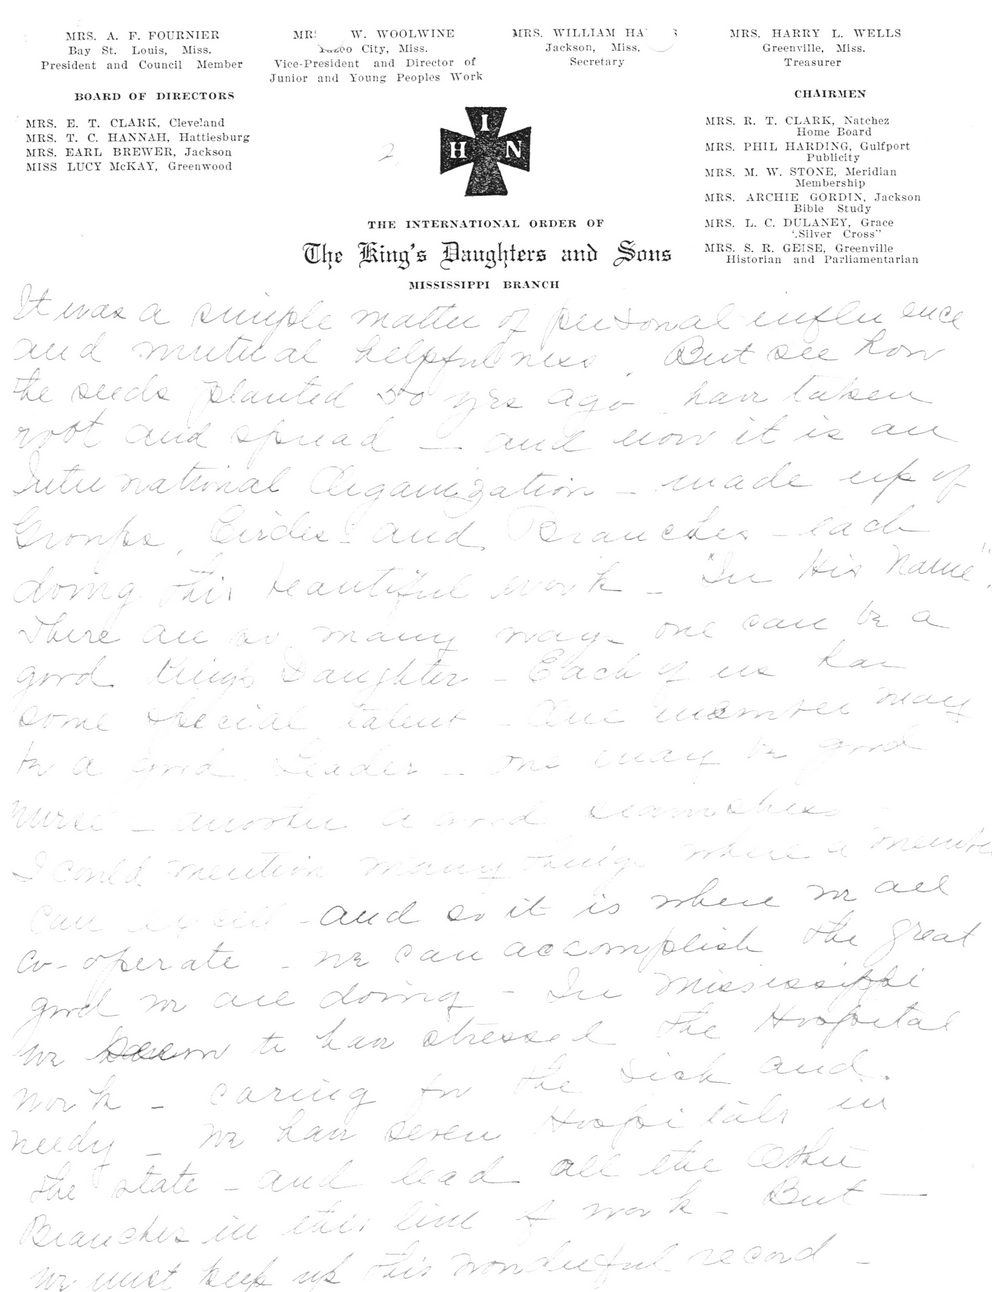 MRS. A. F. FOURNIER
Bay St. Louis, Miss.
President and Council Member
W. WOOLWINE
Yazoo City, Miss.
Vice-President and Director of
Junior and Young Peoples Work
MRS. WILLIAM
Jackson, Miss.
Secretary
MRS. HARRY L. WELLS
Greenville, Miss.
Treasurer
BOARD OF DIRECTORS
MRS. E. T. CLARK, Cleveland
MRS. T. C. HANNAH, Hattiesburg
MRS. EARL BREWER, Jackson
MISS LUCY McKAY, Greenwood
2
I
H N
CHAIRMEN
MRS. R. T. CLARK, Natchez
Home Board
MRS. PHIL HARDING, Gulfport
Publicity
MRS. M. W. STONE, Meridian
Membership
MRS. ARCHIE GORDIN, Jackson
Bible Study
MRS. L. C. DULANEY, Grace
"Silver Cross"
MRS. S. R. GEISE, Greenville
Historian and Parliamentarian
THE INTERNATIONAL ORDER OF
The King's Daughters and Sons
MISSISSIPPI BRANCH
It was a simple matter of personal influence
and mutual helpfulness. But see how
the seeds planted 50 yrs ago have taken
root and spread — and now it is an
International Organization — made up of
Groups, Circles and Branches — each
doing this beautiful work — "In His Name".
There are so many ways one can be a
good King's Daughter — Each of us has
some special talent — One member may
be a good Leader — one may be good
nurse — another a good seamstress —
I could mention many things where a member
can — and so it is where we all
co-operate — we can accomplish the great
good we are doing — In Mississippi
we seem to have stressed the Hospital
work — caring for the Sick and
needy — We have seven Hospitals in
the state — and lead all the Other
Branches in this line of work — But —
we must keep up this wonderful record —